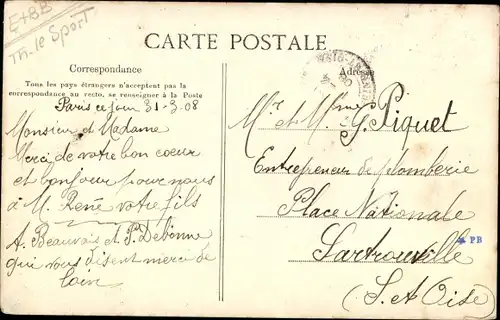 E+BB
Th. le Sport
CARTE POSTALE
Correspondance
Tous les pays étrangers n'acceptent pas la
correspondance au recto, se renseigner à la Poste
Adresse
Paris ce jour 31-3-08
Monsieur et Madame
Merci de votre bon coeur
et bonjour pour nous
à M. René votre fils
A. Beauvais et Debonne
qui vous disent merci de
loin
Mr et Mme G. Piquet
Entrepreneur de plomberie
Place Nationale
Sartrouville
PB
(S. et Oise)